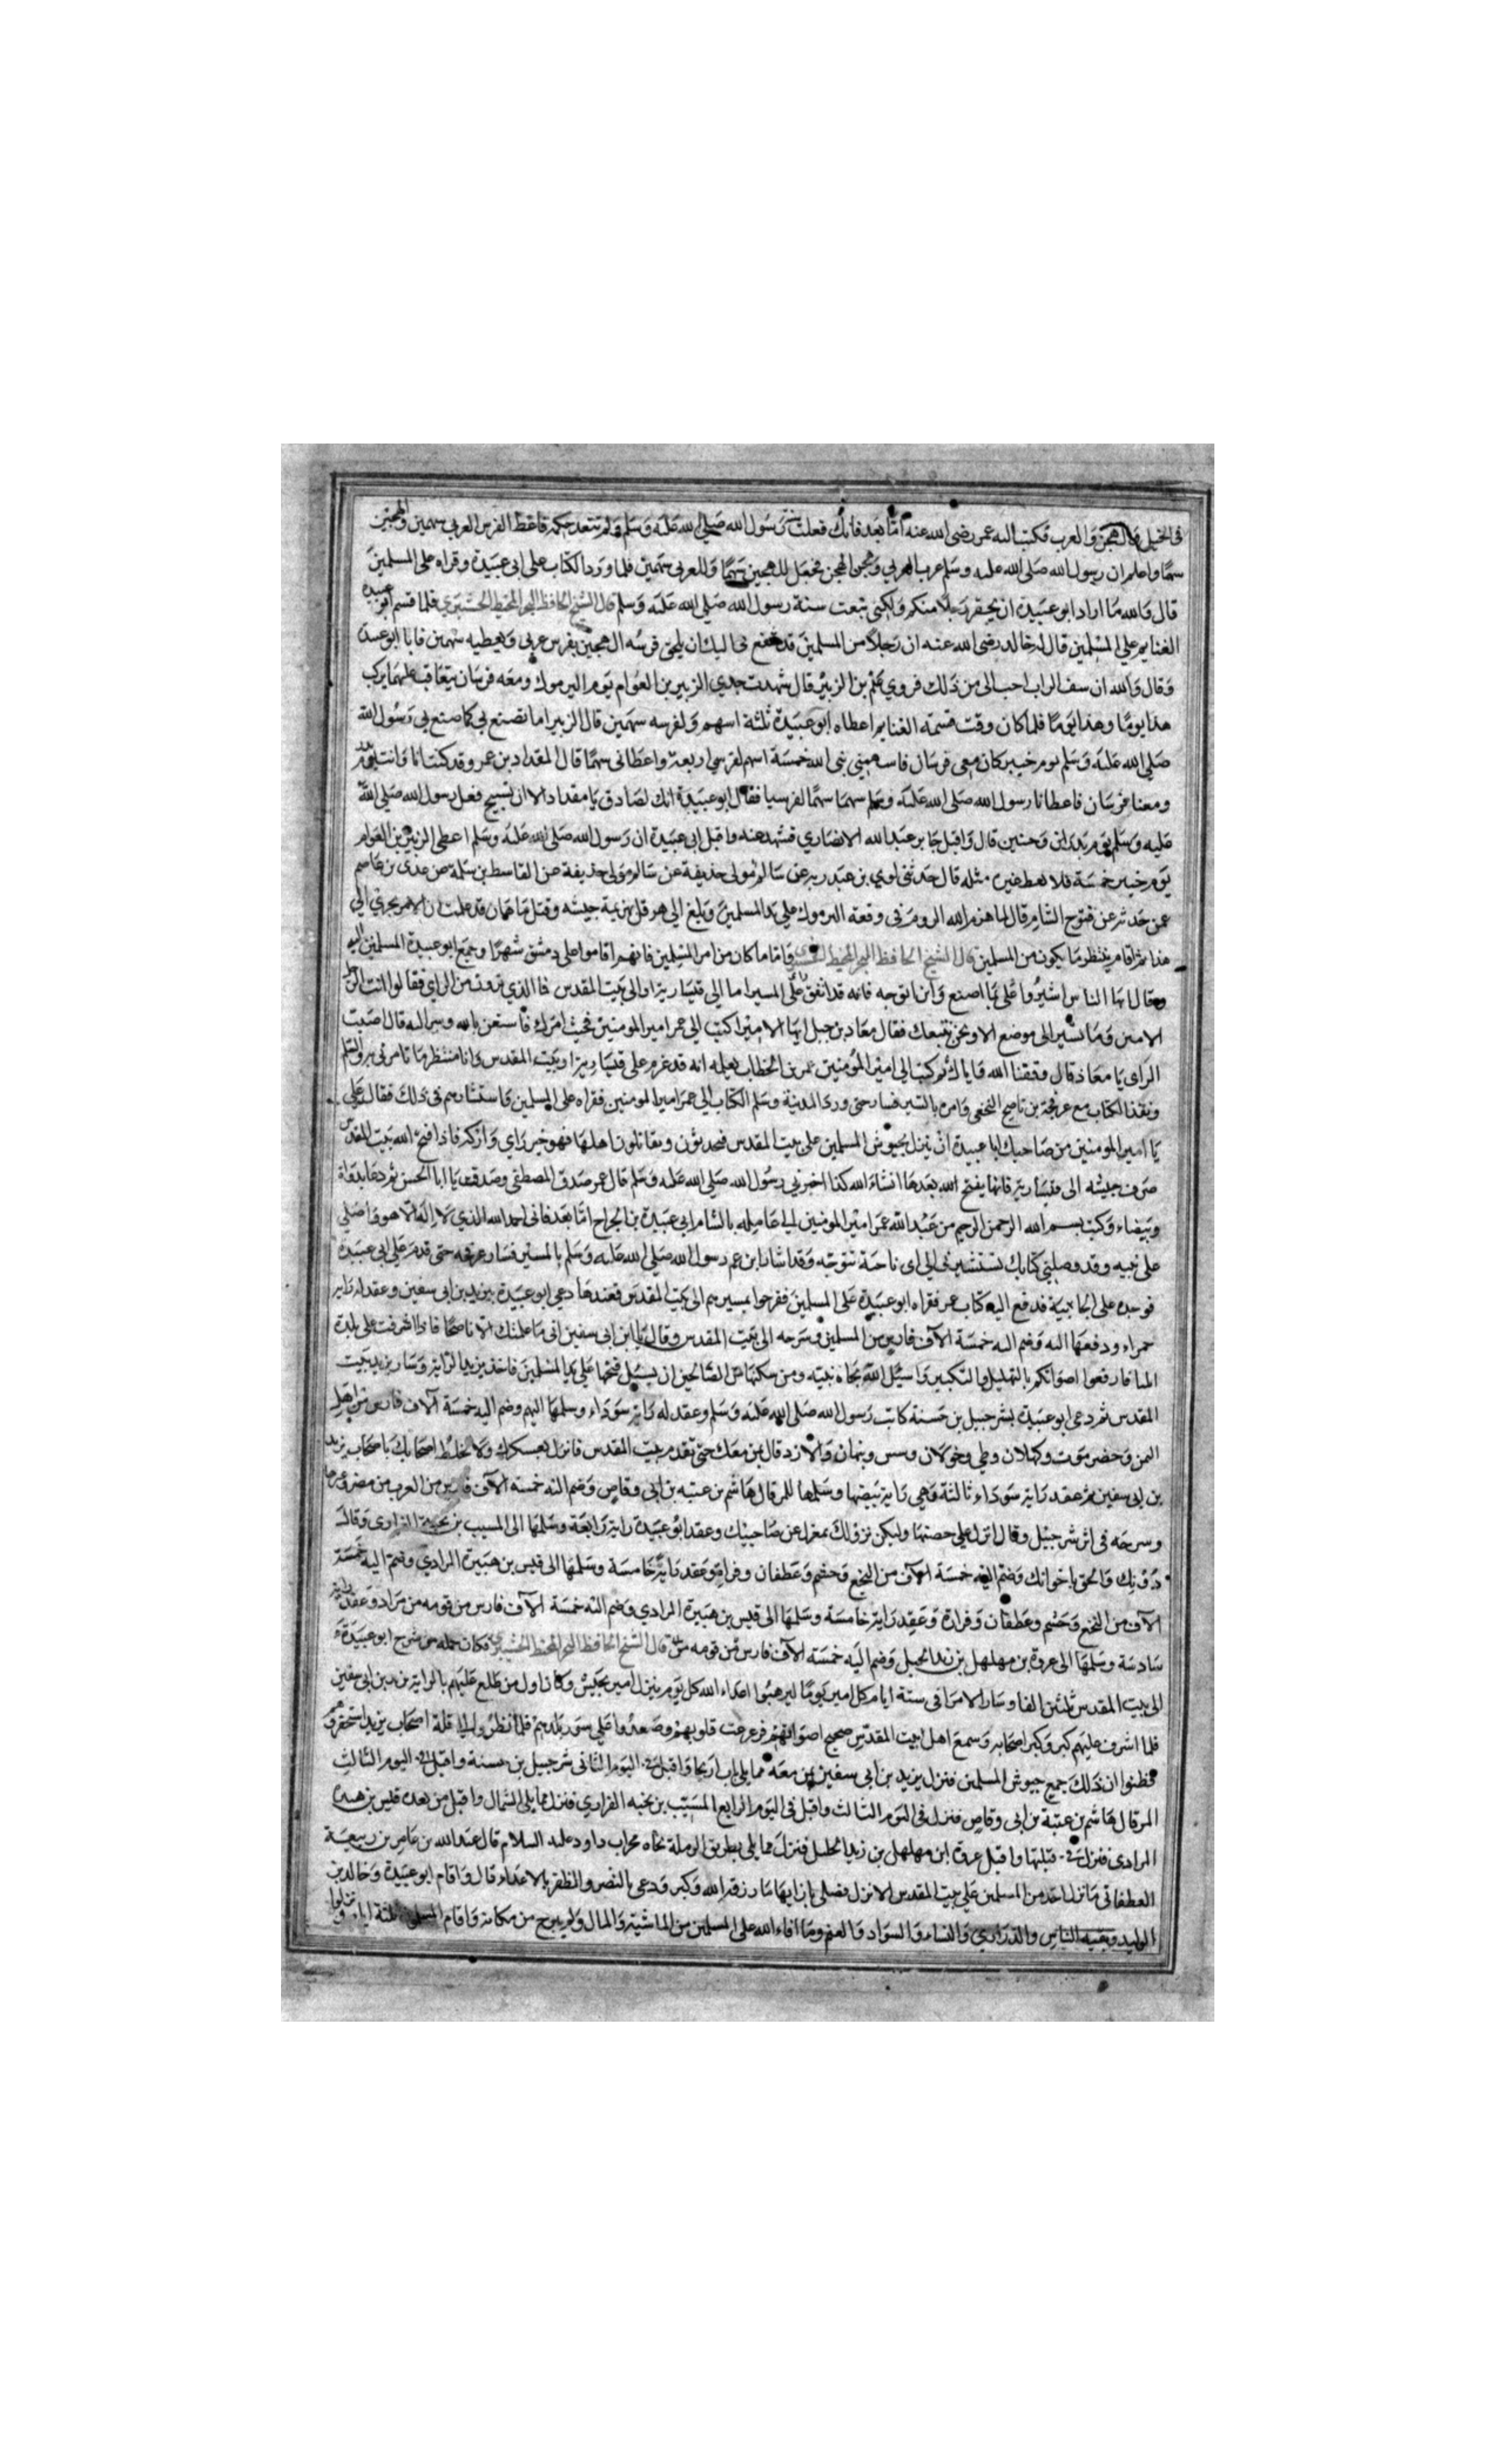 في الخيل والهجن والعرب فكتب اليه عمر رضي الله عنه اما بعد فانك فعلت بسنة رسول الله صلي الله عليه وسلم ولم تتعد حكمه فاعط الفرس العربي سهمين والهجين
سهمًا واعلم ان رسول الله صلي الله عليه وسلم عرب العربي وهجن الهجن فجعل للهجين سهمًا وللعربي سهمين فلما ورد الكتاب علي ابي عبيدة وقراه علي المسلمين
قال والله ما اراد ابو عبيدة ان يحقر رجلا منكم ولكني تبعت سنة رسول الله صلي الله عليه وسلم قال الشيخ الحافظ فلما قسم ابو عبيده
الغنايم علي المسلمين قال له خالد رضي الله عنه ان رجلا من المسلمين قد تشفع بي اليك ان يلحق فرسه الهجين بفرس عربي ويعطيه سهمين فابا ابو عبيدة
وقال والله ان سف التراب احب الي من ذلك فروي بن الزبير قال شهدت جدي الزبير بن العوام يوم اليرموك ومعه فرسان يتعاقب عليهما يركب
هذا يومًا وهذا يومًا فلما كان وقت قسمة الغنايم اعطاه ابو عبيدة ثلثة اسهم ولفرسه سهمين قال الزبير اما تصنع بي كما صنع بي رسول الله
صلي الله عليه وسلم يوم خيبر كان معي فرسان فاسهمني نبي الله خمسة اسهم لفرسي اربعة واعطاني سهمًا قال المقداد بن عمرو قد كنت انا وانت يوم بدر
ومعنا فرسان فاعطانا رسول الله صلي الله عليه وسلم سهما سهمًا لفرسينا فقال ابو عبيدة انك لصادق يا مقداد فعل رسول الله صلي الله
عليه وسلم يوم بدر وحنين قال واقبل جابر عبد الله الانصاري فشهد عنده واقبل ابي عبيدة ان رسول الله صلي الله عليه وسلم اعطي الزبير بن العوام
يوم خيبر خمسة فلا تعط غيره مثله قال حدثني لوي بن عبد ربه عن سالم مولي حذيفة عن سالم مولي حذيفة عن القاسط بن سلمة عن عدي بن عاصم
عمن حدثه عن فتوح الشام قال لما هزم الله الروم في وقعة اليرموك علي يد المسلمين وبلغ الي هرقل هزيمة جيشه وقتل ماهان قد علمت ان الامر يجري الي
هذا ثم اقام ينتظر ما يكون من المسلمين قال الشيخ الحافظ فاما ما كان من امر المسلمين فانهم اقاموا علي دمشق شهرًا وجمع ابو عبيدة المسلمين اليه
وقال ايها الناس اشيروا علي بما اصنع واين اتوجه فانه قد اتفق علي المسير اما الي قيسارية او الي بيت المقدس فما الذي ترونه من الراي فقالوا انت الرجل
الامين وما تسير الي موضع الا ونحن نتبعك فقال معاذ بن جبل ايها الامير اكتب الي عمر امير المومنين فحيث امرك فاستعن بالله وسر اليه قال اصبت
الراي يا معاذ قال وفقنا الله واياك ثم كتب الي امير المومنين عمر بن الخطاب يعلمه انه قد عزم علي قيسارية او بيت المقدس وانا منتظر ما تامرني به والسلم
ونفذ الكتاب مع عرفجة بن ناصح النخعي وامره بالسير فسار حتي ورد المدينة وسلم الكتاب الي عمر امير المومنين فقراه علي المسلمين فاستشارهم في ذلك فقال علي
يا امير المومنين مر صاحبك ابا عبيدة ان ينزل بجيوش المسلمين علي بيت المقدس فيحدقون ويقاتلون اهلها فهو خير راي وازكر فاذا فتح الله بيت المقدس
صرف جيشه الي قيسارية فانها يفتح الله بعدها انشاء الله كذا اخبرني رسول الله صلي الله عليه وسلم قال عمر صدق المصطفي وصدقت يا ابا الحسن ثم دعا بدواة
وبيضاء وكتب بسم الله الرحمن الرحيم من عبد الله عمر امير المومنين الي عامله بالشام ابي عبيدة بن الجراح اما بعد فاني احمد الله الذي لا اله الا هو واصلي
علي نبيه وقد وصلني كتابك تستشيرني الي اي ناحية تتوجه وقد اشار ابن عم رسول الله صلي الله عليه وسلم بالمسير فسار عرفجه حتي قدم علي ابي عبيدة
فوجده علي الجابية فدفع اليه كتاب عمر فقراه ابو عبيدة علي المسلمين ففرحوا بمسيرهم الي بيت المقدس فعندها دعي ابو عبيدة بيزيد بن ابي سفين وعقد له راية
حمراء ودفعها اليه وضم اليه خمسة الآف فارس من المسلمين وسرحه الي بيت المقدس وقال يا ابن ابي سفين اني ما علمتك الا ناصحًا فاذا اشرفت علي بلدة
المنا فارفعوا اصواتكم بالتهليل والتكبير واسئل الله بجاه نبيه ومن سكنها من الصالحين ان يسهل فتحها علي يد المسلمين فاخذ يزيد الراية وسار يريد بيت
المقدس ثم دعي ابو عبيدة بشرحبيل بن حسنة كاتب رسول الله صلي الله عليه وسلم وعقد له راية سوداء وسلمها اليهم وضم اليه خمسة آلاف فارس من اهل
اليمن وحضرموت وكهلان وطي وخولان وسس ونبهان والازد قال بمن معك حتي تقدم بيت المقدس فانزل بعسكرك ولا تخلط اصحابك باصحاب يزيد
بن ابي سفين ثم عقد راية سوداء ثالثة وهي راية ببيضها وسلمها للمرقال هاشم بن عتبه بن ابي وقاص وضم اليه خمسة الآف فارس من العرب من مضر وغيرها
وسرحه في اثر شرحبيل وقال انزل علي حصنها وليكن نزولك بمعزل عن صاحبيك وعقد ابو عبيدة راية رابعة وسلمها الي المسيب بن نجيبة الفزاري وقال
دونك والحق باخوانك وضم اليه خمسة الآف من النخع وخثعم وغطفان وفزارة وعقد راية خامسة وسلمها الي قيس بن هبيرة المرادي وضم اليه خمسة
الآف من النخع وخثعم وغطفان وفزارة وعقد راية خامسة وسلمها الي قيس بن هبيرة المرادي وضم اليه خمسة الآف فارس من قومه من مراد وعقد راية
سادسة وسلمها الي عروة بن مهلهل بن زيد الخيل وضم اليه خمسة الآف فارس من قومه قال الشيخ الحافظ فكان جمله من سرح ابو عبيدة
الي بيت المقدس ثلثين الفا وسار الامرا في ستة ايام كل امير يومًا ليرهبوا اعداء الله كل يوم ينزل امير بجيش وكان اول من طلع عليهم بالراية يزيد بن ابي سفين
فلما اشرف عليهم كبر وكبر اصحابه وسمع اهل بيت المقدس ضجيج اصواتهم فزعزعت قلوبهم وصعدوا علي سور بلدهم فلما نظروا الي قلة اصحاب يزيد استحقروهم
فظنوا ان ذلك جميع جيوش المسلمين فنزل يزيد بن ابي سفين بمن معه مما يلي باب اريحا واقبل في اليوم الثاني شرحبيل بن حسنة واقبل في اليوم الثالث
المرقال هاشم بن عتبة بن ابي وقاص فنزل في اليوم الثالث واقبل في اليوم الرابع المسيب بن نجبه الفزاري فنزل مما يلي الشمال واقبل من بعده قيس بن هبيرة
المرادي فنزل في قبلتها واقبل عروة ابن مهلهل بن زيد الخيل فنزل مما يلي بطريق الرملة تجاه محراب داود عليه السلام قال عبد الله بن عامر بن ربيعة
الغطفاني ما نزل احد من المسلمين علي بيت المقدس الا نزل فصلي بازايها ما رزقه الله وكبر ودعي بالنصر والظفر بالاعداء قال واقام ابو عبيدة وخالد بن
الوليد وبقية الناس والذراري والنساء والسواد والغنم وما افاء الله علي المسلمين من الماشية والمال ولم يبرح من مكانه واقام المسلمون ثلثة ايام